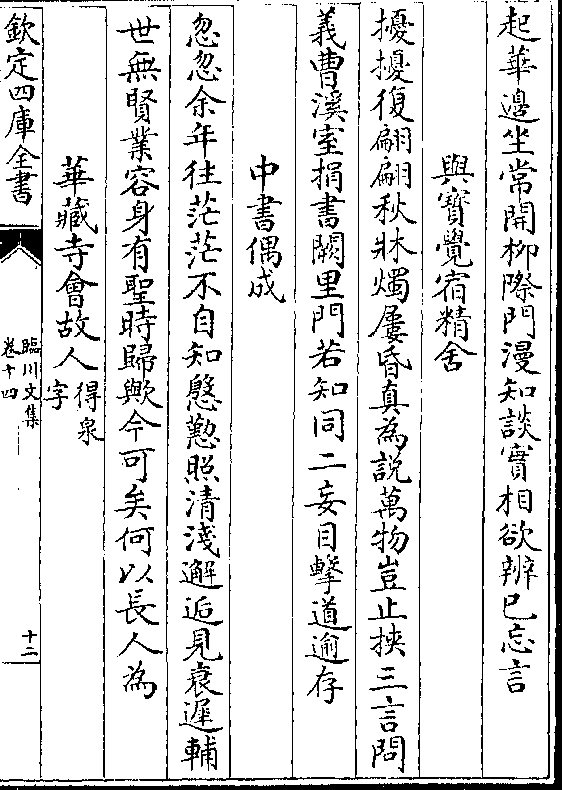 起華邊坐常開柳際門漫知談實相欲辨已忘言
與寶覺宿精舍
擾擾復翩翩秋牀燭屢昏真為說萬物豈止挾三言問
義曹溪室捐書闕里門若知同二妄目擊道逾存
中書偶成
忽忽余年往茫茫不自知慇懃照清淺邂逅見衰遲輔
世無賢業容身有聖時歸歟今可矣何以長人為
華藏寺會故人得泉字
欽定四庫全書
臨川文集
卷十四
十二